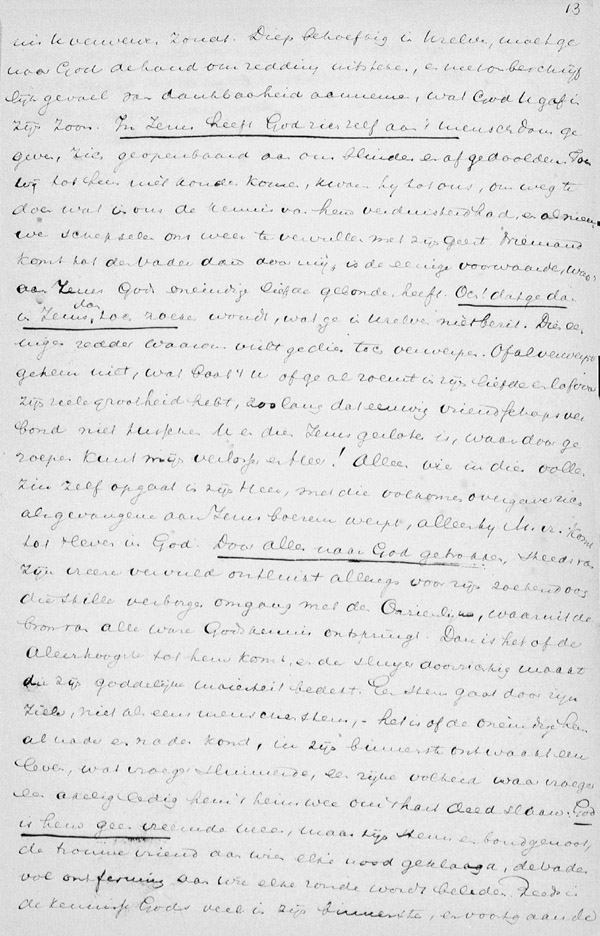 13
uw kwemwe zonde. Diep behoeftig in Uzelve, moet ge
naar God de hand om redding uitsteke, en met onbeschrijf
lijk gevoel van dankbaarheid aanneme, wat God U gaf in
zijn Zoon. In Jezus heeft God zich zelf aan 't menschdom ge
geven, zich geopenbaard aan ons blinde en afgedoolden. Toen
wij tot hem niet konde kome, kwam hij tot ons, om weg te
doen wat in ons de kennis van hem verduisterd had, en als nieu-
we schepsele ons weer te vervulle met zijn geest. Niemand
komt tot de Vader dan door mij, is de eenige voorwaarde, waar
aan Jezus Gods oneindige liefde gebonde heeft. Och! dat ge dan
in Jezus dan toch roeme wondt, wat ge in Uzelve niet bezit. Die ee-
nige redder waarom wilt ge die toch verwerpe. Of al verwerpt
ge hem niet, wat baat 't U of ge al roemt in zijn liefde en lof voor
zijn zielegrootheid hebt, zoolang dat eeuwig vriendschapsver
bond niet tussche U en die Jezus geslote is, waardoor ge
roepe kunt mijn verlosser en Heer! Alleen wie in die volle
zin zelf opgaat in zijn Heer, met die volkomen overgave zich
als gevangene aan Jezus boeien werpt, alleen hij M. v. komt
tot leven in God. Door alles naar God getrokke, steeds van
zijn vreeze vervuld ontsluit allengs voor zijn zoekend oog
die stille verborge omgang met de Oneindige, waaruit de
bron van alle ware Godskennis ontspringt. Dan is het of de
Allerhoogste tot hem komt, en de sluyer doorzichtig maakt
die zijn goddelijke majesteit bedekt. Een stem gaat door zijn
ziele, niet als een menschenstem, - het is of de oneindige hem
al nader en nader komt, in zijn binnenste ontwaakt een
leven, wat vroeger sluimerde, een rijke volheid waar vroeger
een akelig ledig hem 't heimwee om 't hart deed slaan. God
is hem geen vreemde meer, maar zijn steun en bondgenoot,
de trouwe vriend aan wien elke nood geklaagd, de vader
vol ontferming aan wie elke zonde wordt beleden. Zoo is
de kennisse Gods veel in zijn binnenste, en voortgaande